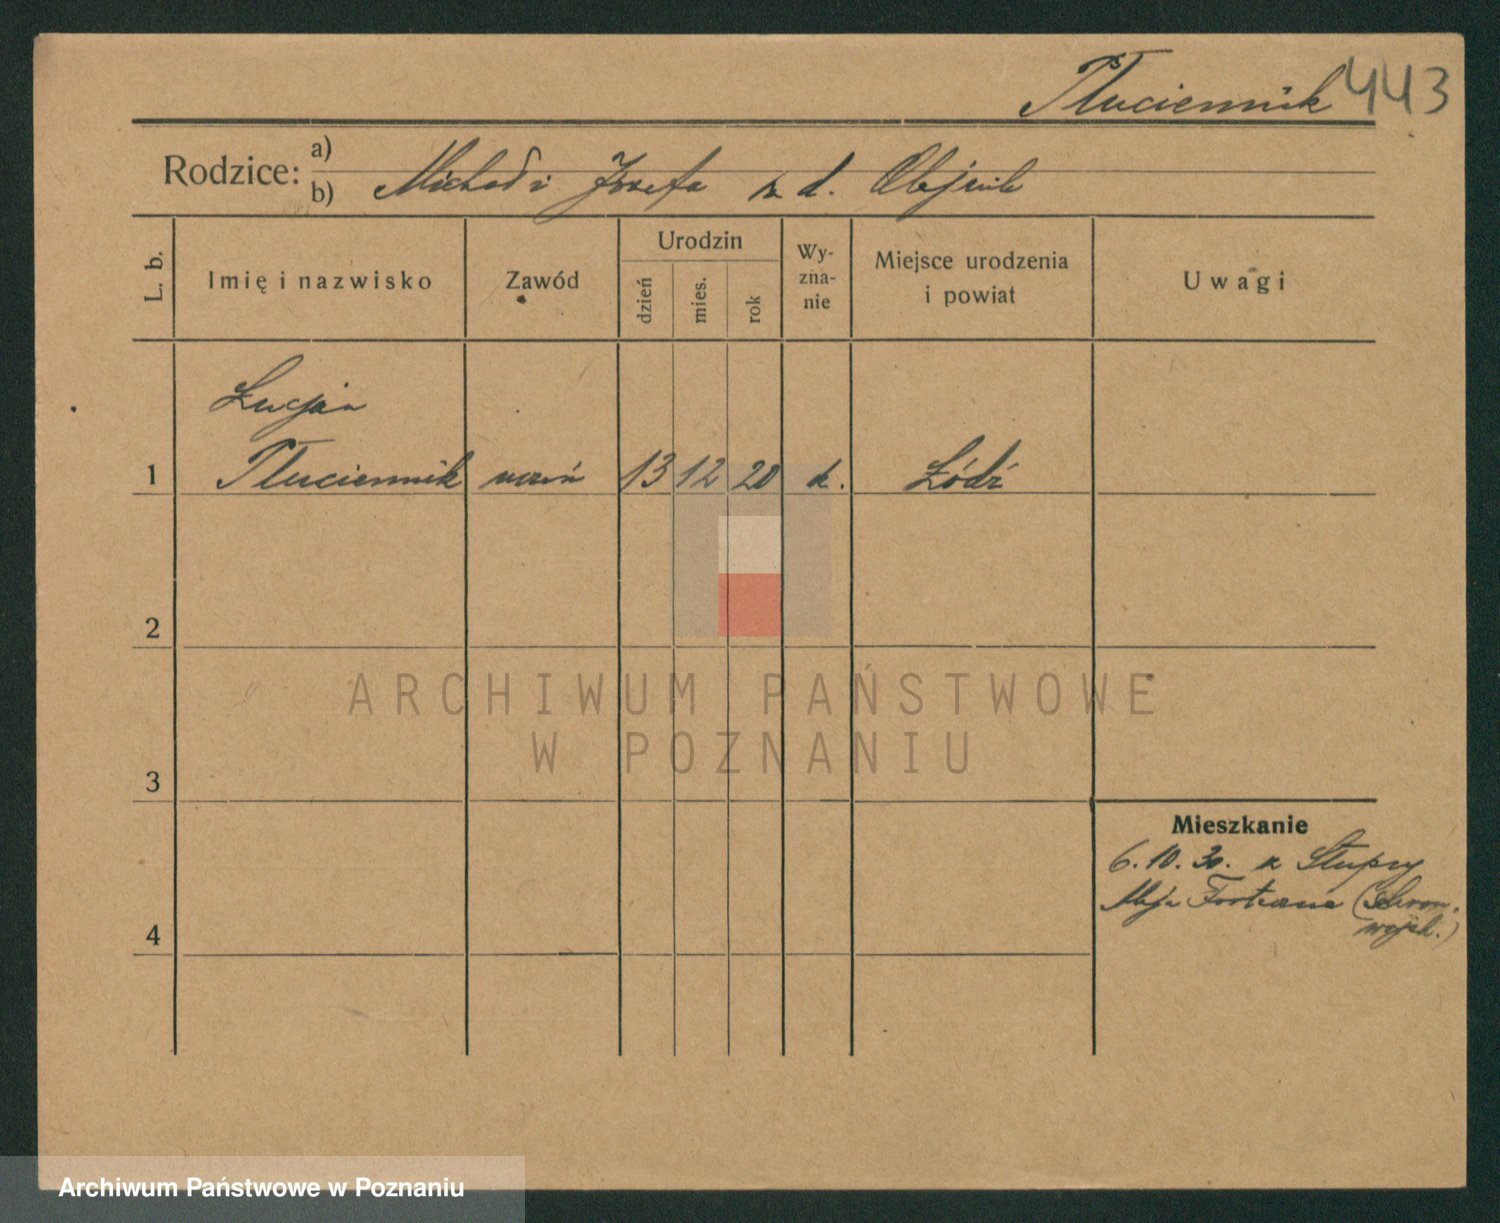 Tłuciennik 443
Rodzice: a)
b) Michał i Józefa z d. Olejnik
L. b.
Imię i nazwisko
Zawód
Urodzin
dzień
mies.
rok
Wy-
zna-
nie
Miejsce urodzenia
i powiat
Uwagi
Łucjan
1 Tłuciennik uczeń 13 12 20 k. Łódź
2
3
4
Mieszkanie
6.10.30. z Słupcy
(schron.
wojsk.)
ARCHIWUM PAŃSTWOWE
W POZNANIU
Archiwum Państwowe w Poznaniu